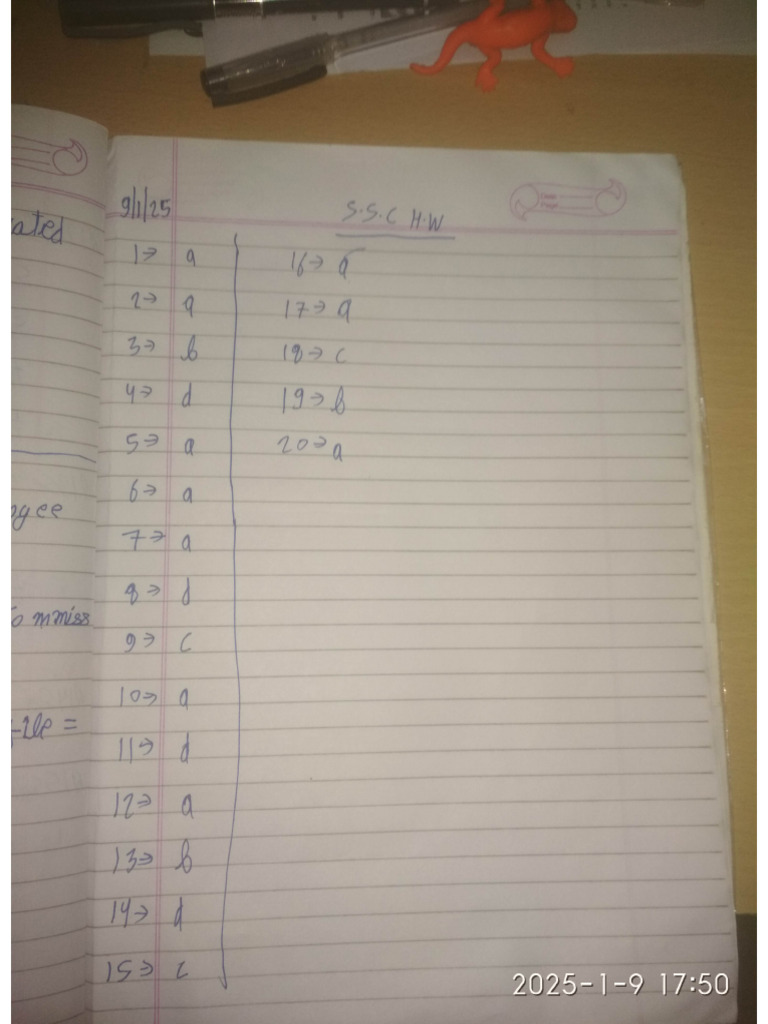 ated
oyee
mmiss
9/1/25
S.S.C H.W
1→ a
2→ a
3→ b
4→ d
5→ a
6→ a
7→ a
8→ d
9→ c
10→ a
11→ d
12→ a
13→ b
14→ d
15→ c
16→ a
17→ a
18→ c
19→ b
20→ a
2025-1-9 17:50